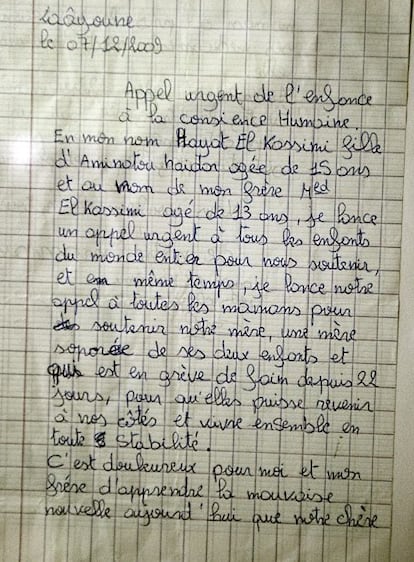 Laâyoune
le 07/12/2009
Appel urgent de l'enfance
à la consience Humaine
En mon nom Hayat El Kassimi fille
d'Aminatou haidar agée de 15 ans
et au nom de mon frère Med
El Kassimi agé de 13 ans, je lance
un appel urgent à tous les enfants
du monde entier pour nous soutenir,
et en même temps, je lance notre
appel à toutes les mamans pour
soutenir notre mère, une mère
soporée de ses deux enfants et
qui est en grève de faim depuis 22
jours, pour qu'elles puisse revenir
à nos côtés et vivre ensemble en
toute stabilité.
C'est douleureux pour moi et mon
frère d'apprendre la mauvaise
nouvelle aujourd'hui que notre chère